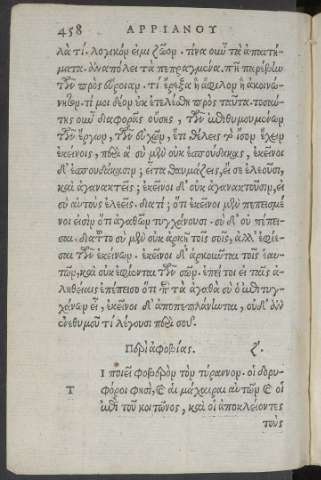 458 ΑΡΡΙΑΝΟΥ
λὰ τί. λογικόν εἰμι ζῶον. τίνα οὖν τὰ ἀπαιτή-
ματα. ἀναπόλει τὰ πεπραγμένα. πῆ παρέβην
τῶν πρὸς εὔροιαν. τί ἔρεξα ἢ ἄφιλον ἢ ἀκοινώ-
νητον. τί μοι δέον οὐκ ἐτελέσθη πρὸς ταῦτα. τοσαύ-
της οὖν διαφορᾶς οὔσης, τῶν ἐπιθυμουμένων
τῶν ἔργων, τῶν εὐχῶν, ἔτι θέλεις τὸ ἴσον ἔχειν
ἐκείνοις, περὶ ἃ σὺ μὲν οὐκ ἐσπούδακας, ἐκεῖνοι
δ' ἐσπουδάκασιν; εἶτα θαυμάζεις, εἴ σε ἐλεοῦσι,
καὶ ἀγανακτεῖς; ἐκεῖνοι δ' οὐκ ἀγανακτοῦσιν, εἰ
σὺ αὐτοὺς ἐλεεῖς. διατί; ὅτι ἐκεῖνοι μὲν πεπεισμέ
νοι εἰσὶν ὅτι ἀγαθῶν τυγχάνουσι. σὺ δ' οὐ πέπει-
σαι. διατοῦτο σὺ μὲν οὐκ ἀρκῇ τοῖς σοῖς, ἀλλ' ἐφίε-
σαι τῶν ἐκείνων. ἐκεῖνοι δ' ἀρκοῦνται τοῖς ἑαυ-
τῶν, καὶ οὐκ ἐφίενται τῶν σῶν. ἐπεί τοι εἰ ταῖς ἀ-
ληθείαις ἐπέπεισο ὅτι περὶ τὰ ἀγαθὰ σὺ ὁ ἐπιτυγ-
χάνων εἶ, ἐκεῖνοι δ' ἀποπεπλάνηνται, οὐδ' ἂν
ἐνεθυμοῦ τί λέγουσι περὶ σοῦ.
Περὶ ἀφοβίας. ζ.
Τ Ι ποιεῖ φοβερὸν τὸν τύραννον. οἱ δορυ-
φόροι φησὶ, καὶ αἱ μάχαιραι αὐτῶν καὶ οἱ
ἐπὶ τοῦ κοιτῶνος, καὶ οἱ ἀποκλείοντες
τοὺς